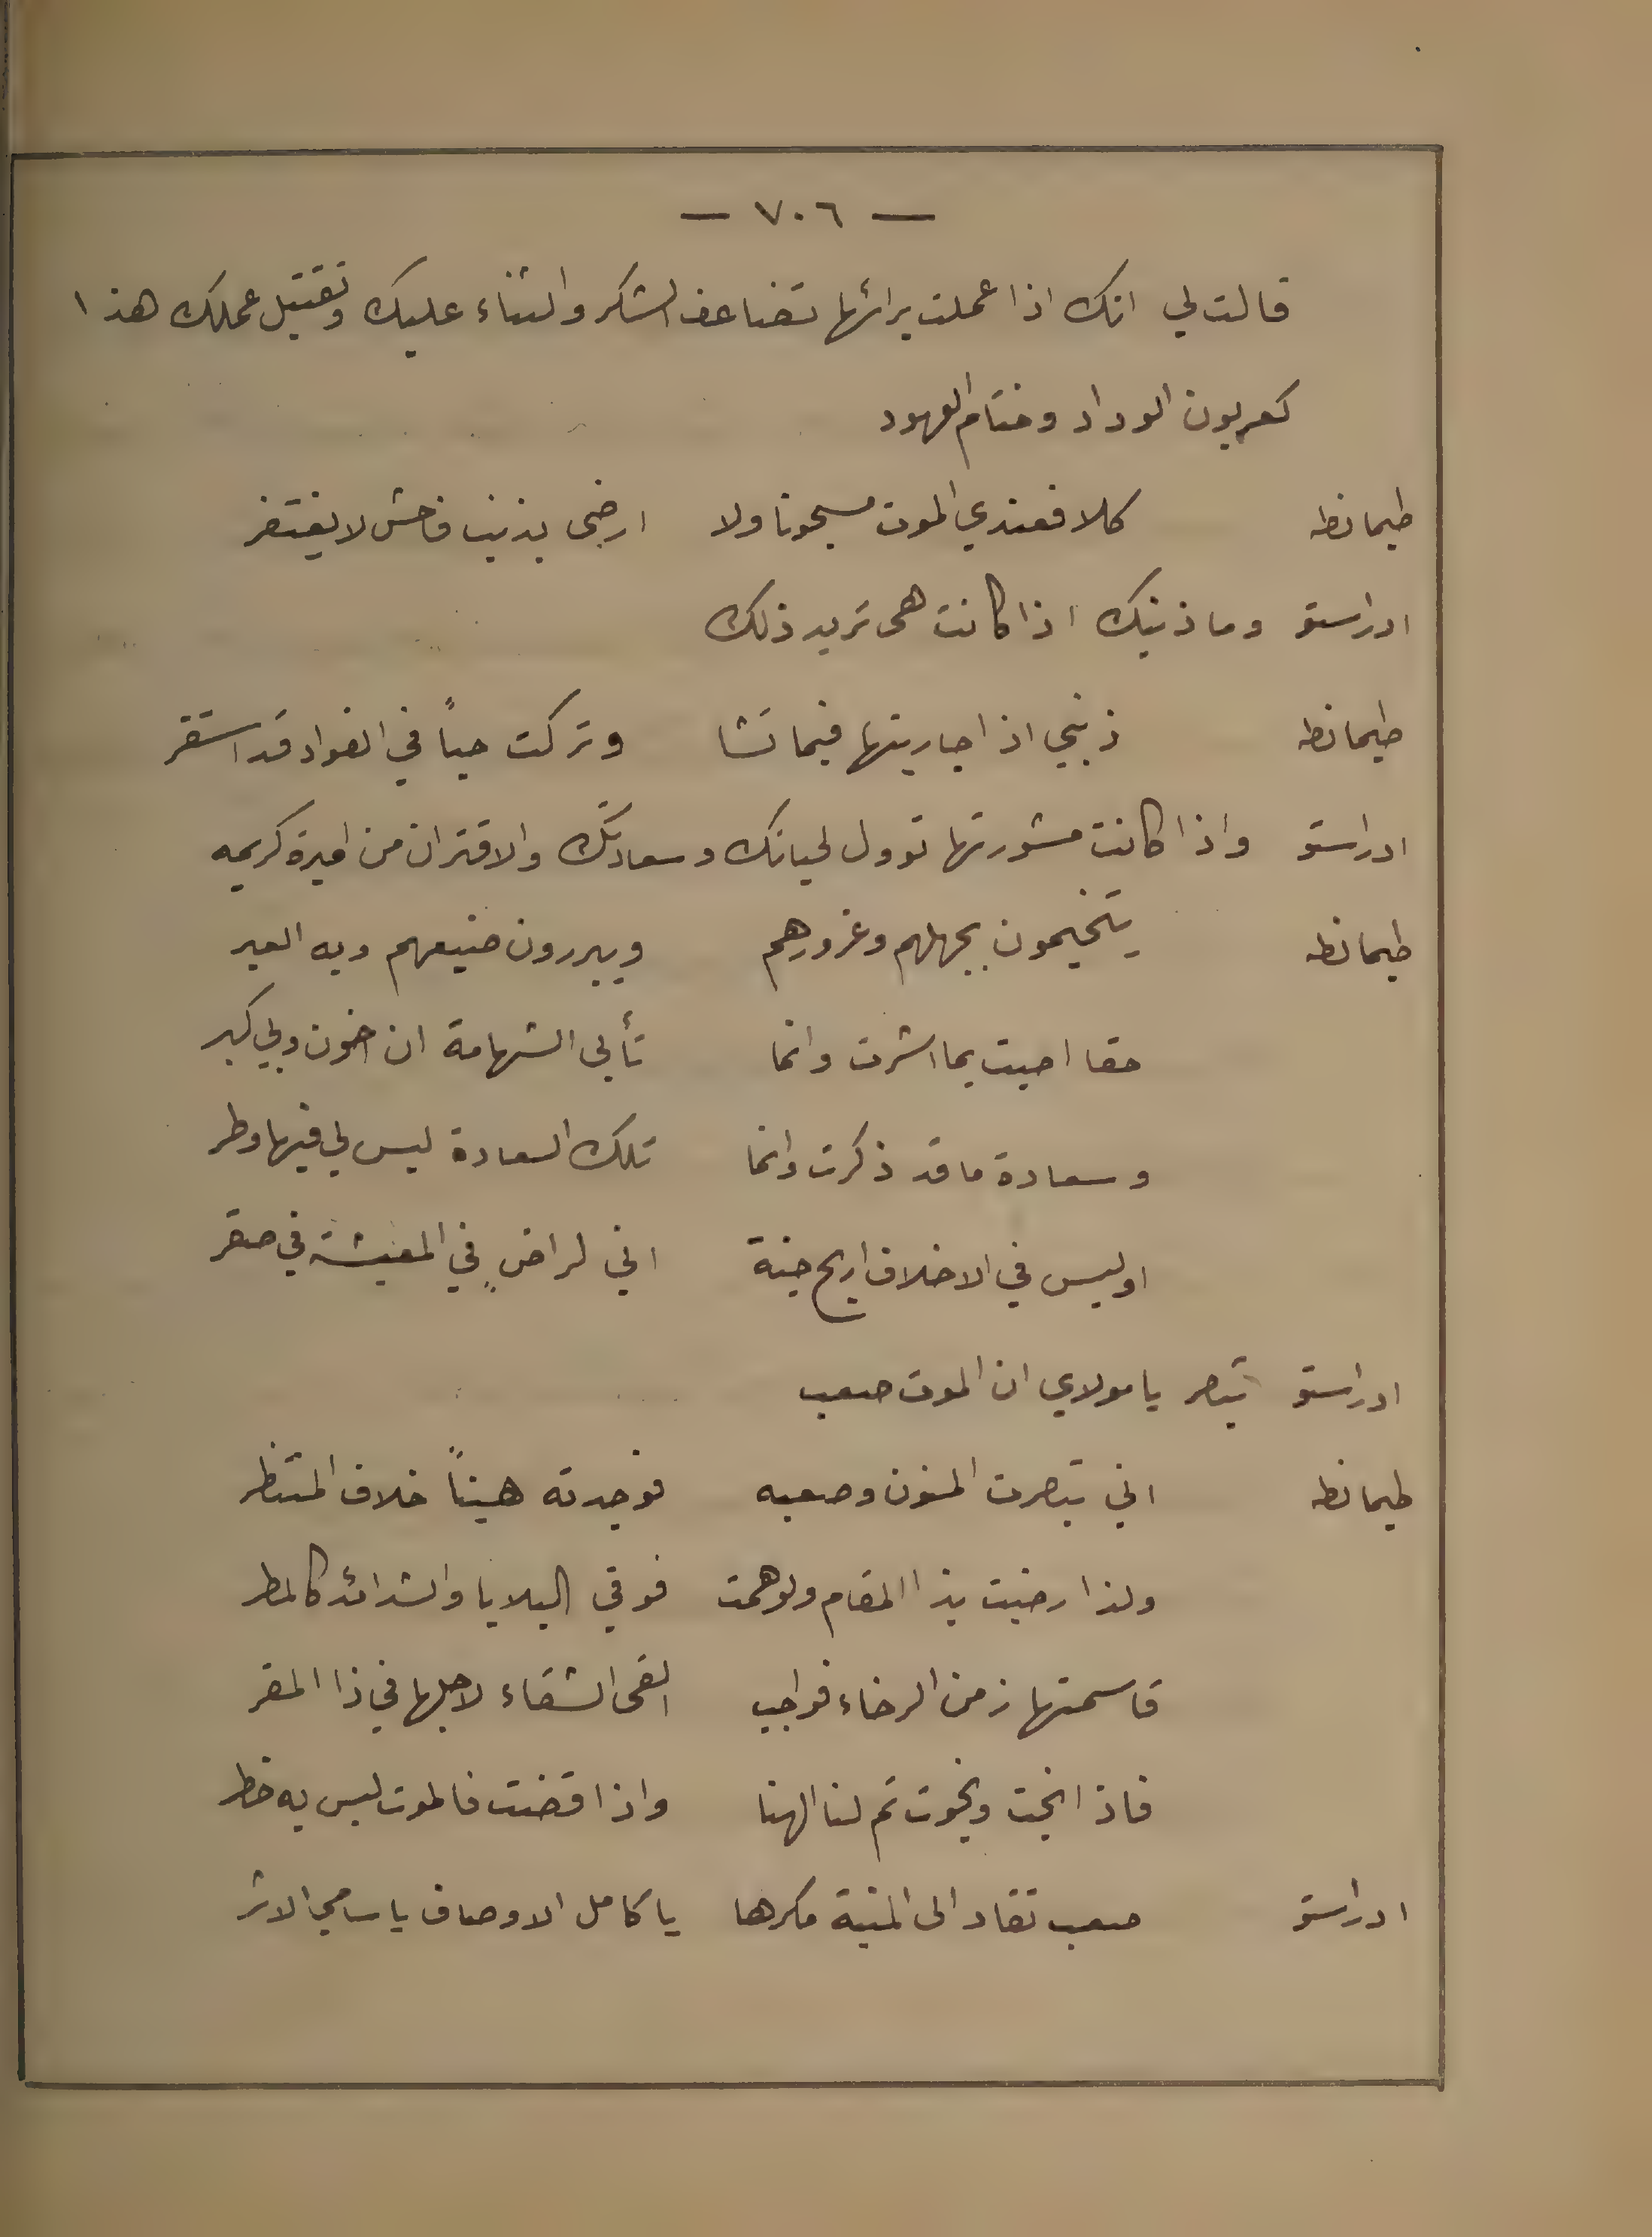 — ٧٠٦ —
قالت لي انك اذا عملت برائها تضاعف الشكر والثناء عليك وتقتبل عملك هذا
كعربون الوداد وختام العهود
طيمانطه كلا فعندي الموت مسجونا ولا ارضى بذنب فاحش لا يغتفر
ادراستو وما ذنبك اذا كانت هى تريد ذلك
طيمانطه ذنبي اذا جاريتها فيما تشا وتركت حباً في الفواد قد استقر
ادراستو واذا كانت مشورتها توول لحياتك وسعادتك والاقتران من اميرة كريمه
طيمانطه بجهلهم وغرورهم ويبررون صنيعهم وبه العبر
حقا احبت بما اشرت وانما تأبى الشهامة ان اخون وبي كبر
وسعادة ما قد ذكرت وانما تلك السعادة ليس لي فيها وطر
اوليس في الاخلاف اربح جنة اني لراضٍ في المعيشة في صقر
ادراستو تبصر يا مولاي ان الموت صعب
طيمانطه اني تبصرت المنون وصعبه فوجدته هيناً خلاف المنتظر
ولذا رضيت بذا المقام ولو همت فوقي البلايا والشدائد كالمطر
قاسمتها زمن الرخاء فواجب القى الشقاء لاجلها في ذا المقر
فاذا نجت ونجوت تم لنا الهنا واذا قضت فالموت ليس به خطر
ادراستو صعب تقاد الى المنية مكرها يا كامل الاوصاف يا سامي الاثر